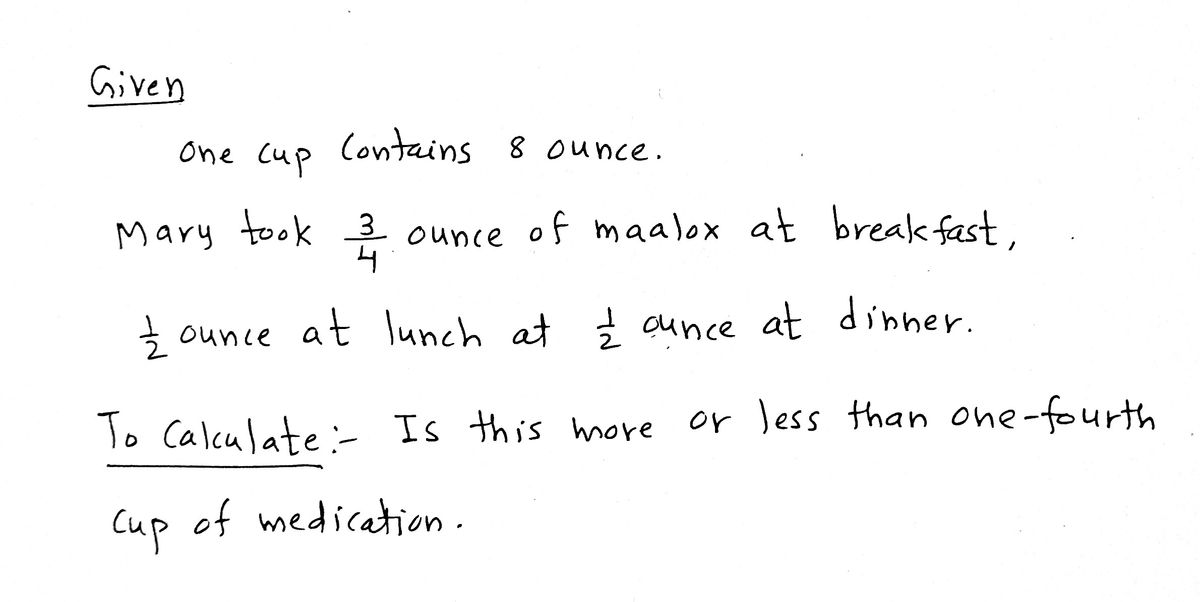 Given
One cup Contains 8 ounce.
Mary took 3/4 ounce of maalox at breakfast,
1/2 ounce at lunch at 1/2 ounce at dinner.
To Calculate:- Is this more or less than one-fourth
Cup of medication.